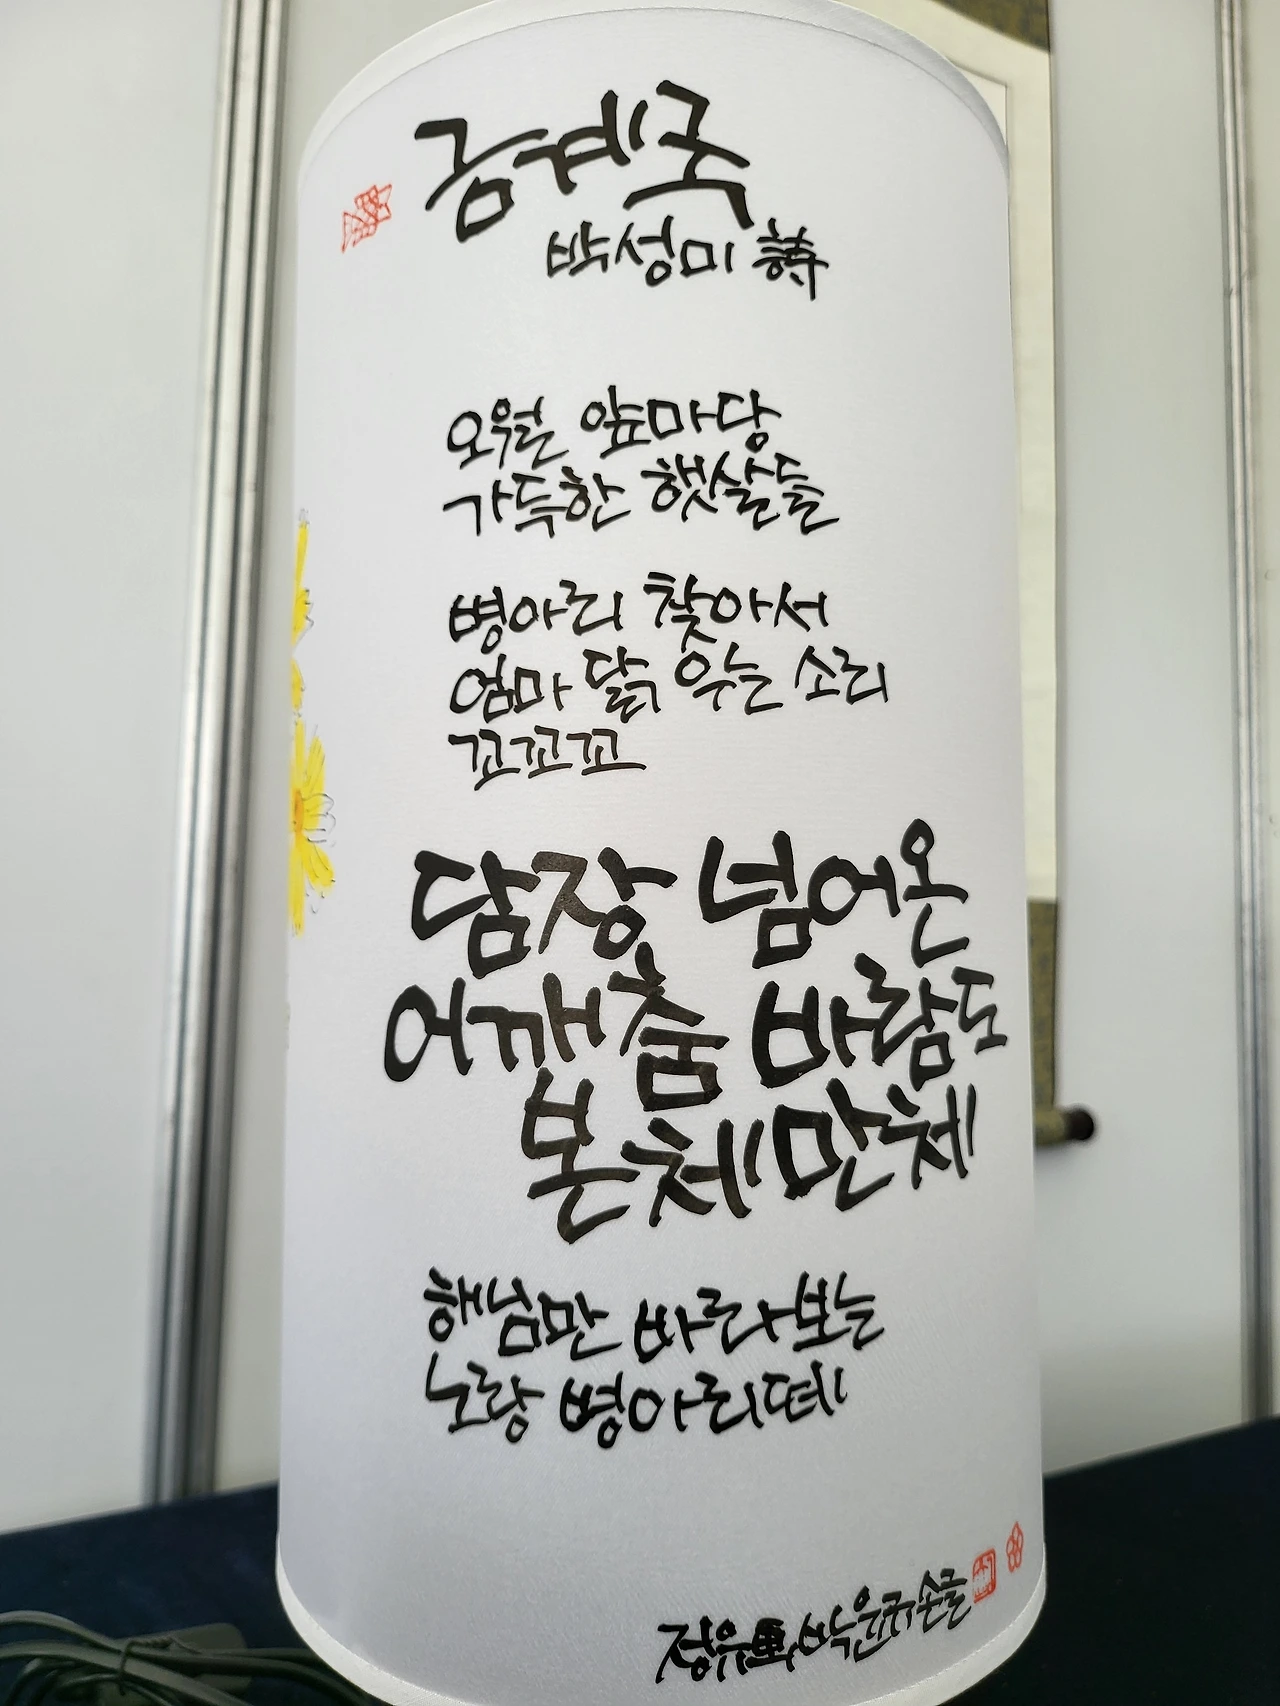 금계국
박성미 詩
오월 앞마당
가득한 햇살들
병아리 찾아서
엄마 닭 우는 소리
꼬꼬꼬
담장 넘어온
어깨춤 바람도
본체만체
해님만 바라보는
노랑 병아리떼
박윤규 손글